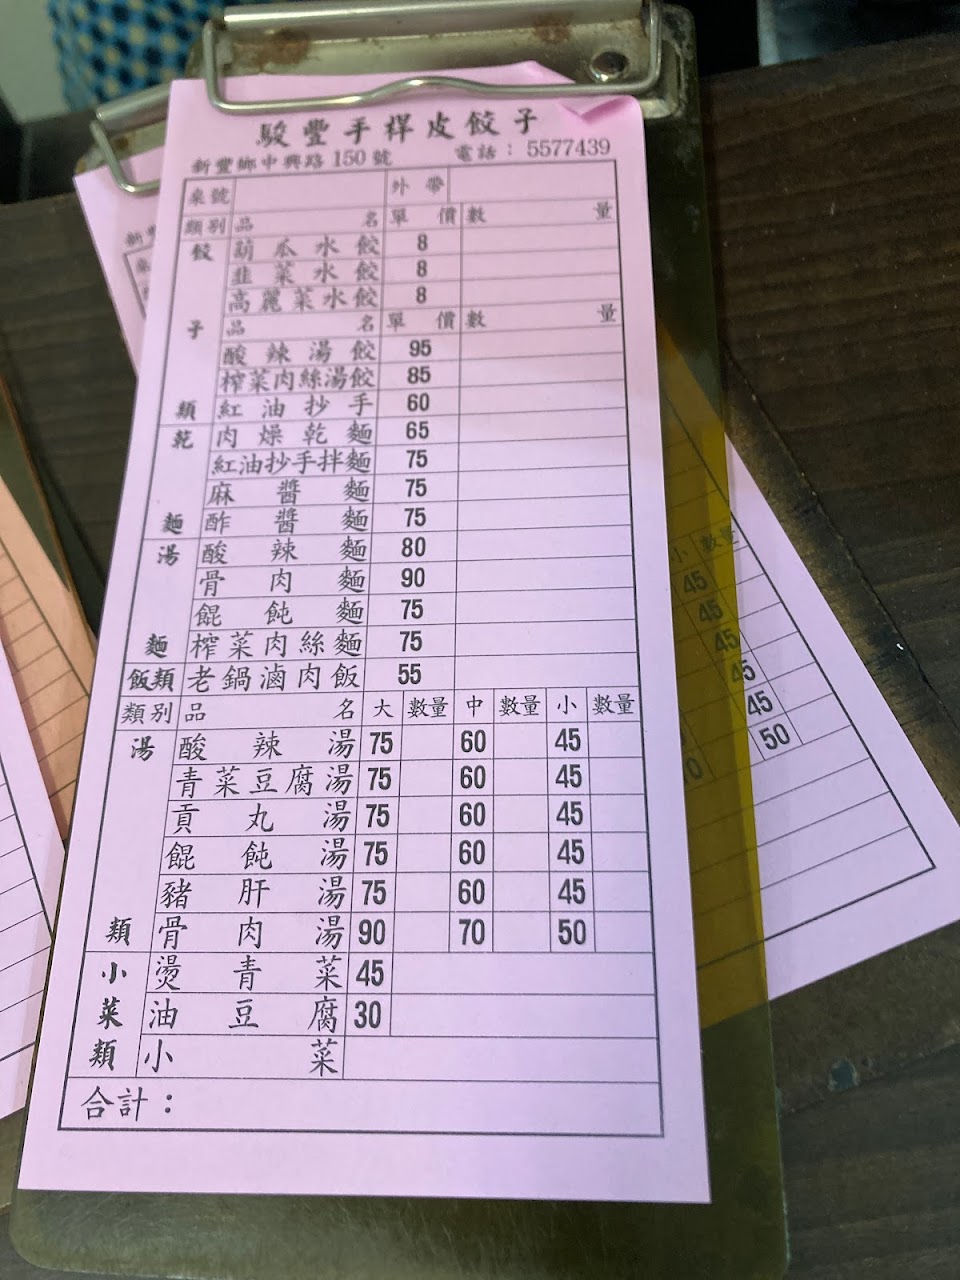 駿豐手桿皮餃子
新豐鄉中興路 150 號 電話：5577439
桌號 外帶
類別 品名 單價 數量
餃 葫瓜水餃 8
韭菜水餃 8
高麗菜水餃 8
子 品名 單價 數量
酸辣湯餃 95
榨菜肉絲湯餃 85
類 紅油抄手 60
乾 肉燥乾麵 65
紅油抄手拌麵 75
麻醬麵 75
麵 酢醬麵 75
湯 酸辣麵 80
骨肉麵 90
餛飩麵 75
麵 榨菜肉絲麵 75
飯類 老鍋滷肉飯 55
類別 品名 大 數量 中 數量 小 數量
湯 酸辣湯 75 60 45
青菜豆腐湯 75 60 45
貢丸湯 75 60 45
餛飩湯 75 60 45
豬肝湯 75 60 45
類 骨肉湯 90 70 50
小 燙青菜 45
菜 油豆腐 30
類 小菜
合計：
小 數量
45
45
45
45
45
70 50